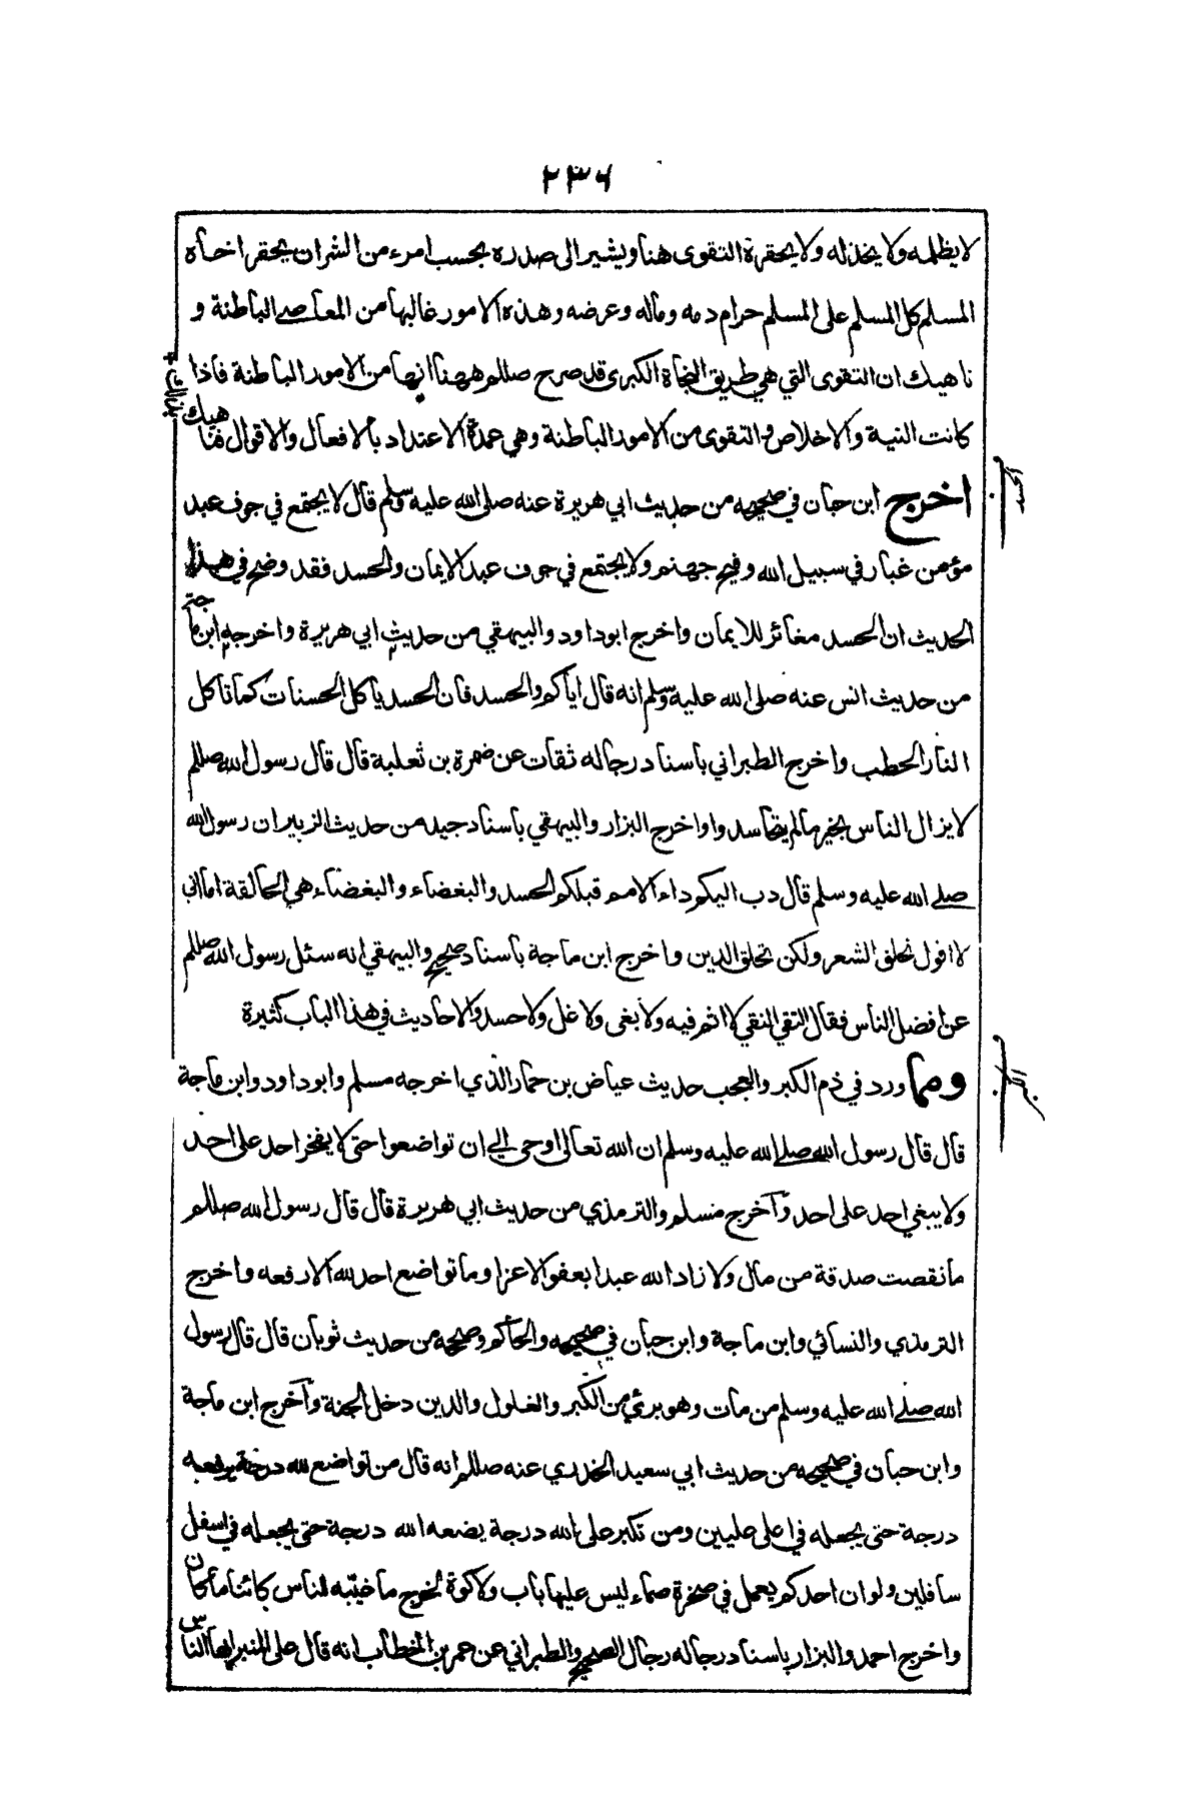 ٢٣٦
لا يظلمه ولا يخذله ولا يحقره التقوى هنا ويشير الى صدره بحسب امرء من الشر ان يحقر اخاه
المسلم كل المسلم على المسلم حرام دمه وماله وعرضه وهذه الامور غالبها من المعاصي الباطنة و
ناهيك ان التقوى التي هي طريق النجاة الكبرى قد صرح صللم ههنا انها من الامور الباطنة فاذا
كانت النية والاخلاص والتقوى من الامور الباطنة وهي عمدة الاعتداد بالافعال والاقوال فناهيك
اخرج ابن حبان في صحيحه من حديث ابي هريرة عنه صلى الله عليه وسلم قال لا يجتمع في جوف عبد
الحسد
مؤمن غبار في سبيل الله وفيح جهنم ولا يجتمع في جوف عبد الايمان والحسد فقد وضح في هذا
الحديث ان الحسد مغائر للايمان واخرج ابو داود والبيهقي من حديث ابي هريرة واخرجه ابن ماجة
من حديث انس عنه صلى الله عليه وسلم انه قال اياكم والحسد فان الحسد ياكل الحسنات كما تاكل
النار الحطب واخرج الطبراني باسناد رجاله ثقات عن ضمرة بن ثعلبة قال قال رسول الله صللم
لا يزال الناس بخير ما لم يتحاسدوا واخرج البزار والبيهقي باسناد جيد من حديث الزبير ان رسول الله
صلى الله عليه وسلم قال دب اليكم داء الامم قبلكم الحسد والبغضاء والبغضاء هي الحالقة اما اني
لا اقول تحلق الشعر ولكن تحلق الدين واخرج ابن ماجة باسناد صحيح والبيهقي انه سئل رسول الله صللم
عن افضل الناس فقال التقي النقي لا اثم فيه ولا بغى ولا غل ولا حسد والاحاديث في هذا الباب كثيرة
ومما ورد في ذم الكبر والعجب حديث عياض بن حمار الذي اخرجه مسلم وابو داود وابن ماجة
قال قال رسول الله صلى الله عليه وسلم ان الله تعالى اوحى الي ان تواضعوا حتى لا يفخر احد على احد
ولا يبغي احد على احد وآخرج مسلم والترمذي من حديث ابي هريرة قال قال رسول الله صللم
ما نقصت صدقة من مال ولا زاد الله عبدا بعفو الا عزا وما تواضع احد لله الا رفعه واخرج
الترمذي والنسائي وابن ماجة وابن حبان في صحيحه والحاكم وصححه من حديث ثوبان قال قال رسول
الله صلى الله عليه وسلم من مات وهو برئ من الكبر والغلول والدين دخل الجنة وآخرج ابن ماجة
وابن حبان في صحيحه من حديث ابي سعيد الخدري عنه صللم انه قال من تواضع لله درجة يرفعه
درجة حتى يجعله في اعلى عليين ومن تكبر على الله درجة يضعه الله درجة حتى يجعله في اسفل
سافلين ولو ان احدكم يعمل في صخرة صماء ليس عليها باب ولا كوة لخرج ما غيبه للناس كائنا ما كان
واخرج احمد والبزار باسناد رجاله رجال الصحيح والطبراني عن عمر بن الخطاب انه قال على المنبر ايها الناس